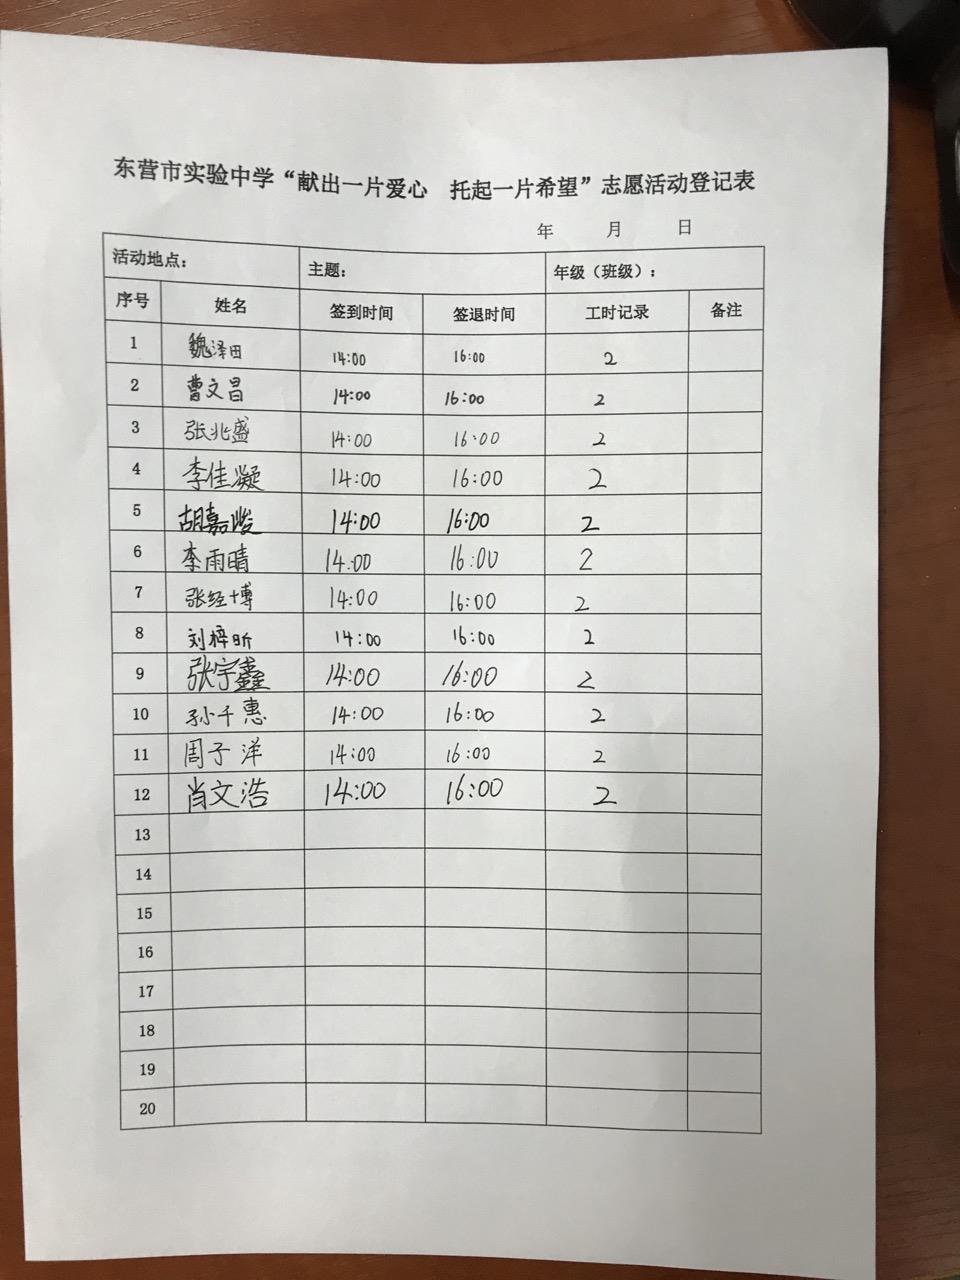 东营市实验中学“献出一片爱心 托起一片希望”志愿活动登记表
年 月 日
活动地点： 主题： 年级（班级）：
序号 姓名 签到时间 签退时间 工时记录 备注
1 魏泽田 14:00 16:00 2
2 曹文昌 14:00 16:00 2
3 张兆盛 14:00 16:00 2
4 李佳凝 14:00 16:00 2
5 胡嘉峻 14:00 16:00 2
6 李雨晴 14:00 16:00 2
7 张经博 14:00 16:00 2
8 刘梓昕 14:00 16:00 2
9 张宇鑫 14:00 16:00 2
10 孙千惠 14:00 16:00 2
11 周子洋 14:00 16:00 2
12 肖文浩 14:00 16:00 2
13
14
15
16
17
18
19
20